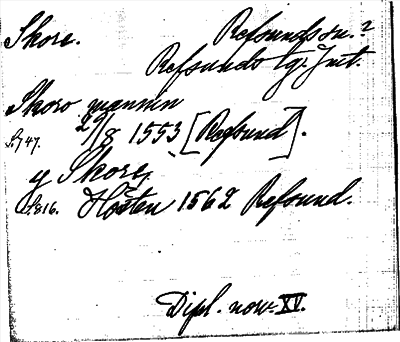 Skore. Refsunds sn.?
Refsunds tg. Jmt.
Skoro mannin
S. 747. 29/8 1553 [Refsund].
y Skore,
S. 816. Hösten 1562 Refsund.
Dipl. norv. XV.